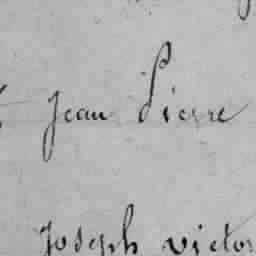 Jean Pierre
Joseph victor